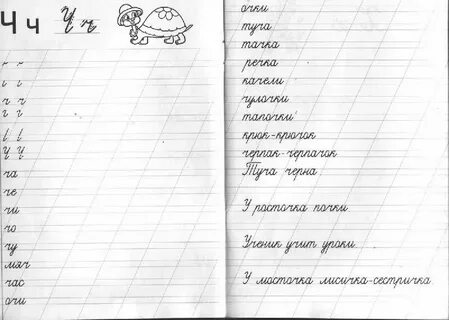 Ч ч Ч ч
ч ч
Ч Ч
ча
че
чи
чо
чу
мяч
час
очи
очки
туча
тачка
речка
качели
чулочки
тапочки
крюк-крючок
черпак-черпачок
Туча черна.
У росточка почки.
Ученик учит уроки.
У мосточка лисичка-сестричка